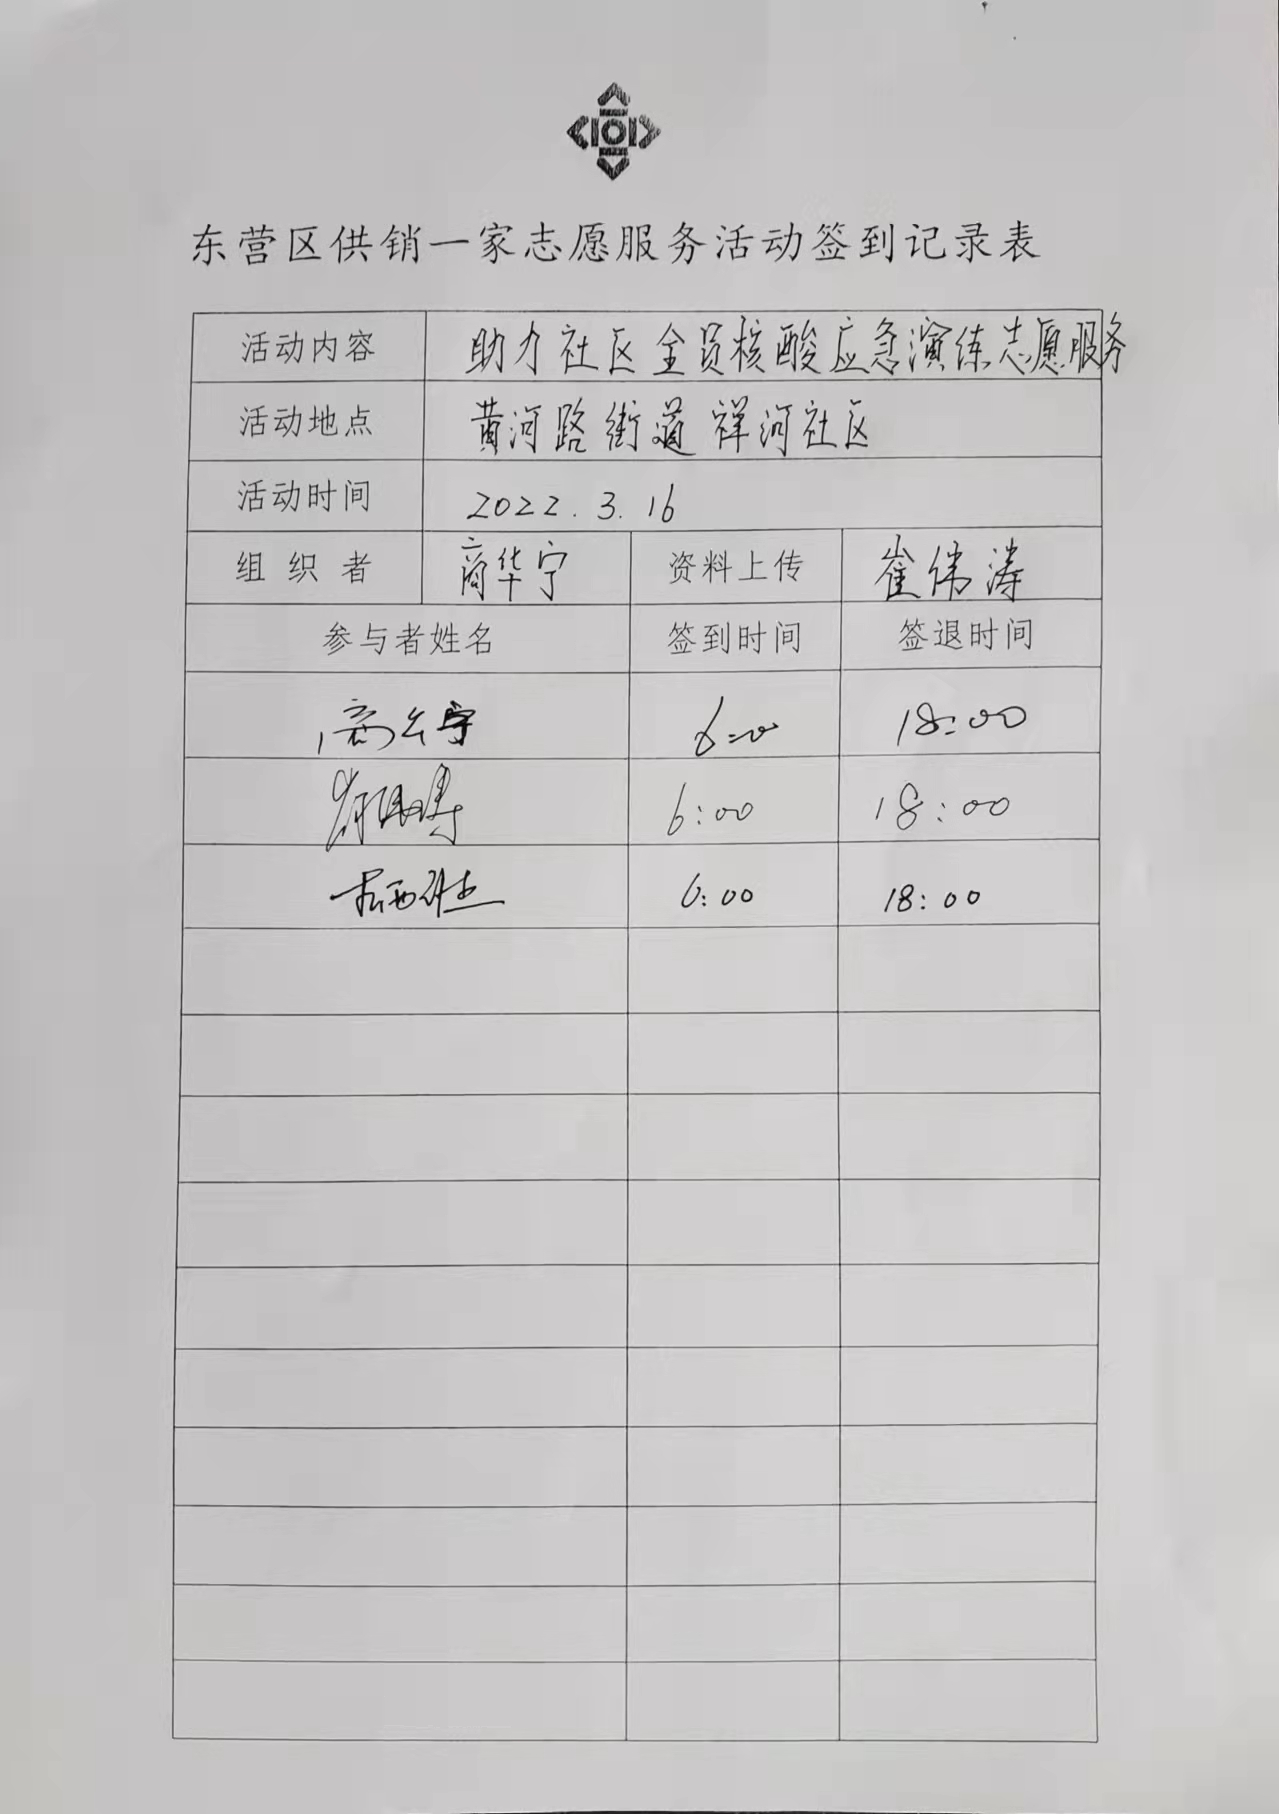 东营区供销一家志愿服务活动签到记录表
活动内容 助力社区全员核酸应急演练志愿服务
活动地点 黄河路街道祥河社区
活动时间 2022.3.16
组织者 商华宁 资料上传 崔伟涛
参与者姓名 签到时间 签退时间
商华宁 6:00 18:00
6:00 18:00
6:00 18:00